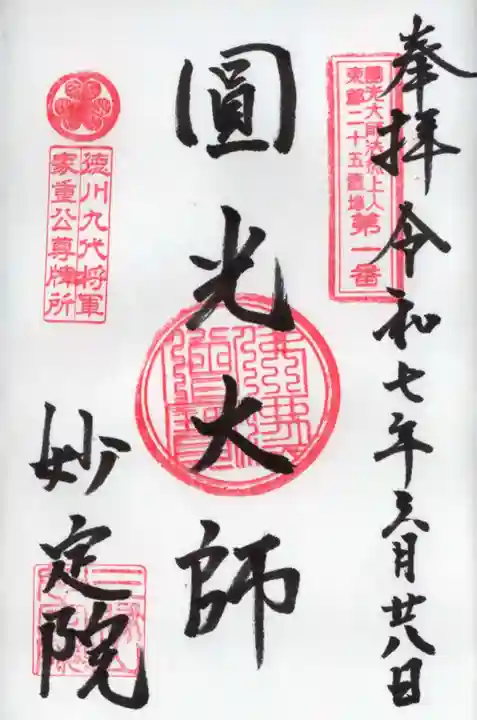 奉拝令和七年三月廿八日
圓光大師法然上人
東都二十五霊場
第一番
圓光大師
徳川九代将軍
家重公尊牌所
妙定院